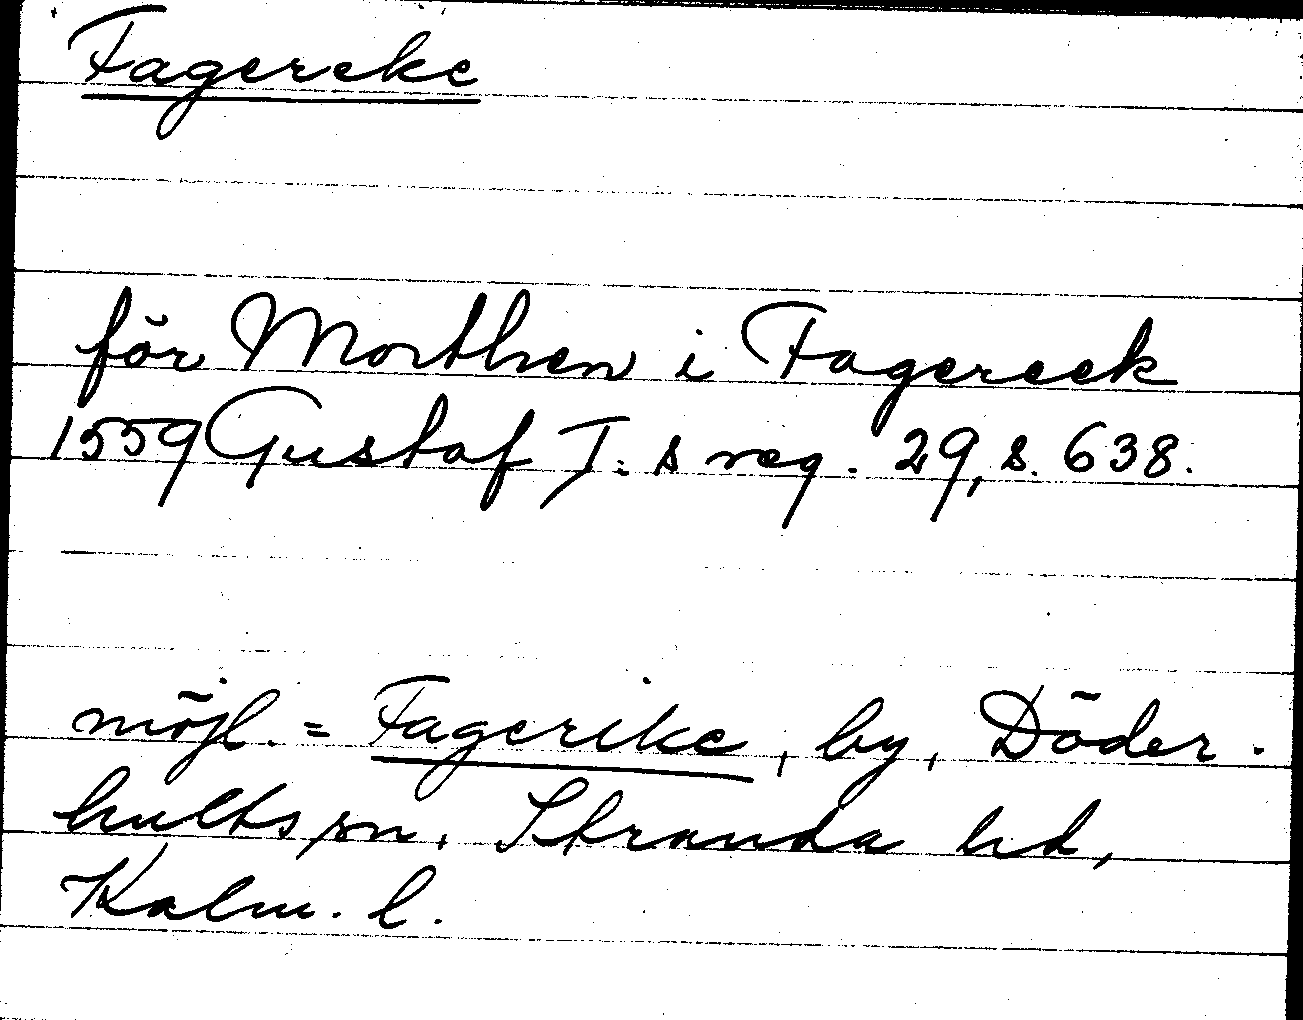 Fagereke
för Morthen i Fagereek
1559 Gustaf I:s reg. 29, s. 638.
möjl. = Fagerike, by, Döder-
hults sn, Stranda hd,
Kalm. l.